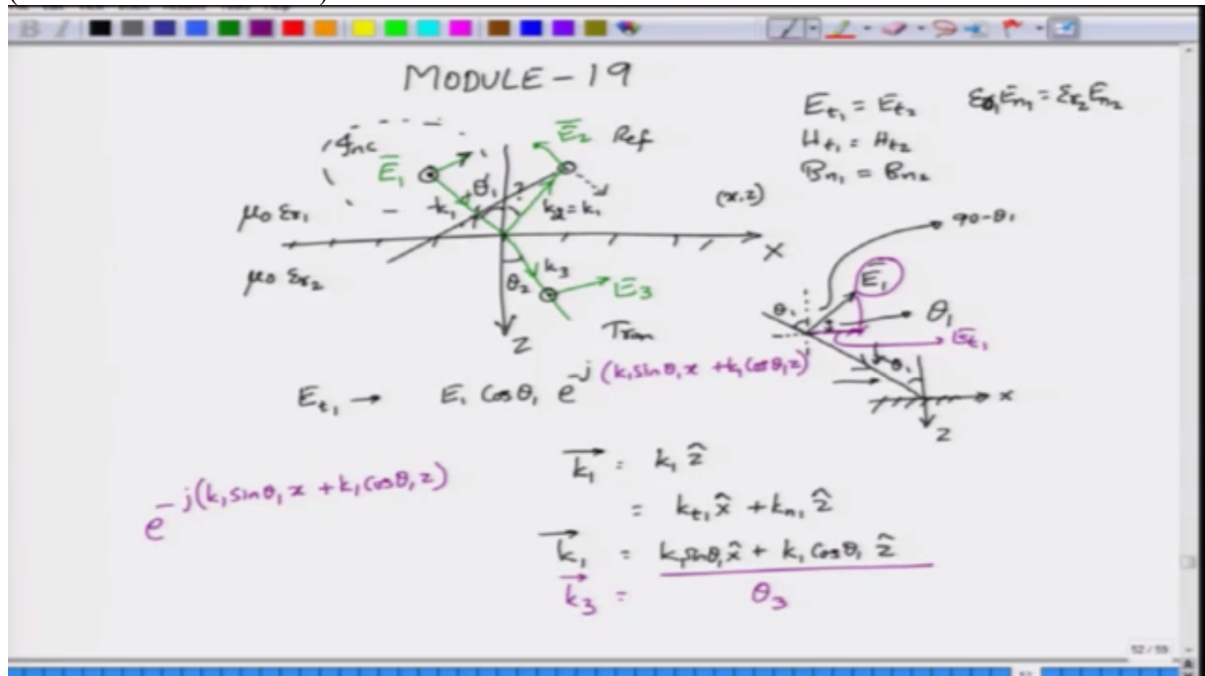 MODULE - 19
E̅t₁ = E̅t₂
εr₁E̅n₁ = εr₂E̅n₂
Ht₁ = Ht₂
Bn₁ = Bn₂
Inc
E̅₁
E̅₂ Ref
θ₁ ?
k₁
k₂ = k₁
(x,z)
μ₀ εr₁
X
μ₀ εr₂
θ₂
k₃
E̅₃
Tran
Z
90-θ₁
E̅₁
θ₁
θ₁
E̅t₁
θ₁
x
z
Et₁ → E₁ Cosθ₁ e^-j(k₁sinθ₁x + k₁Cosθ₁z)
k₁ = k₁ ẑ
= kt₁ x̂ + kn₁ ẑ
e^-j(k₁sinθ₁x + k₁Cosθ₁z)
k₁ = k₁sinθ₁x̂ + k₁Cosθ₁ ẑ
k₃ = θ₃
52 / 59